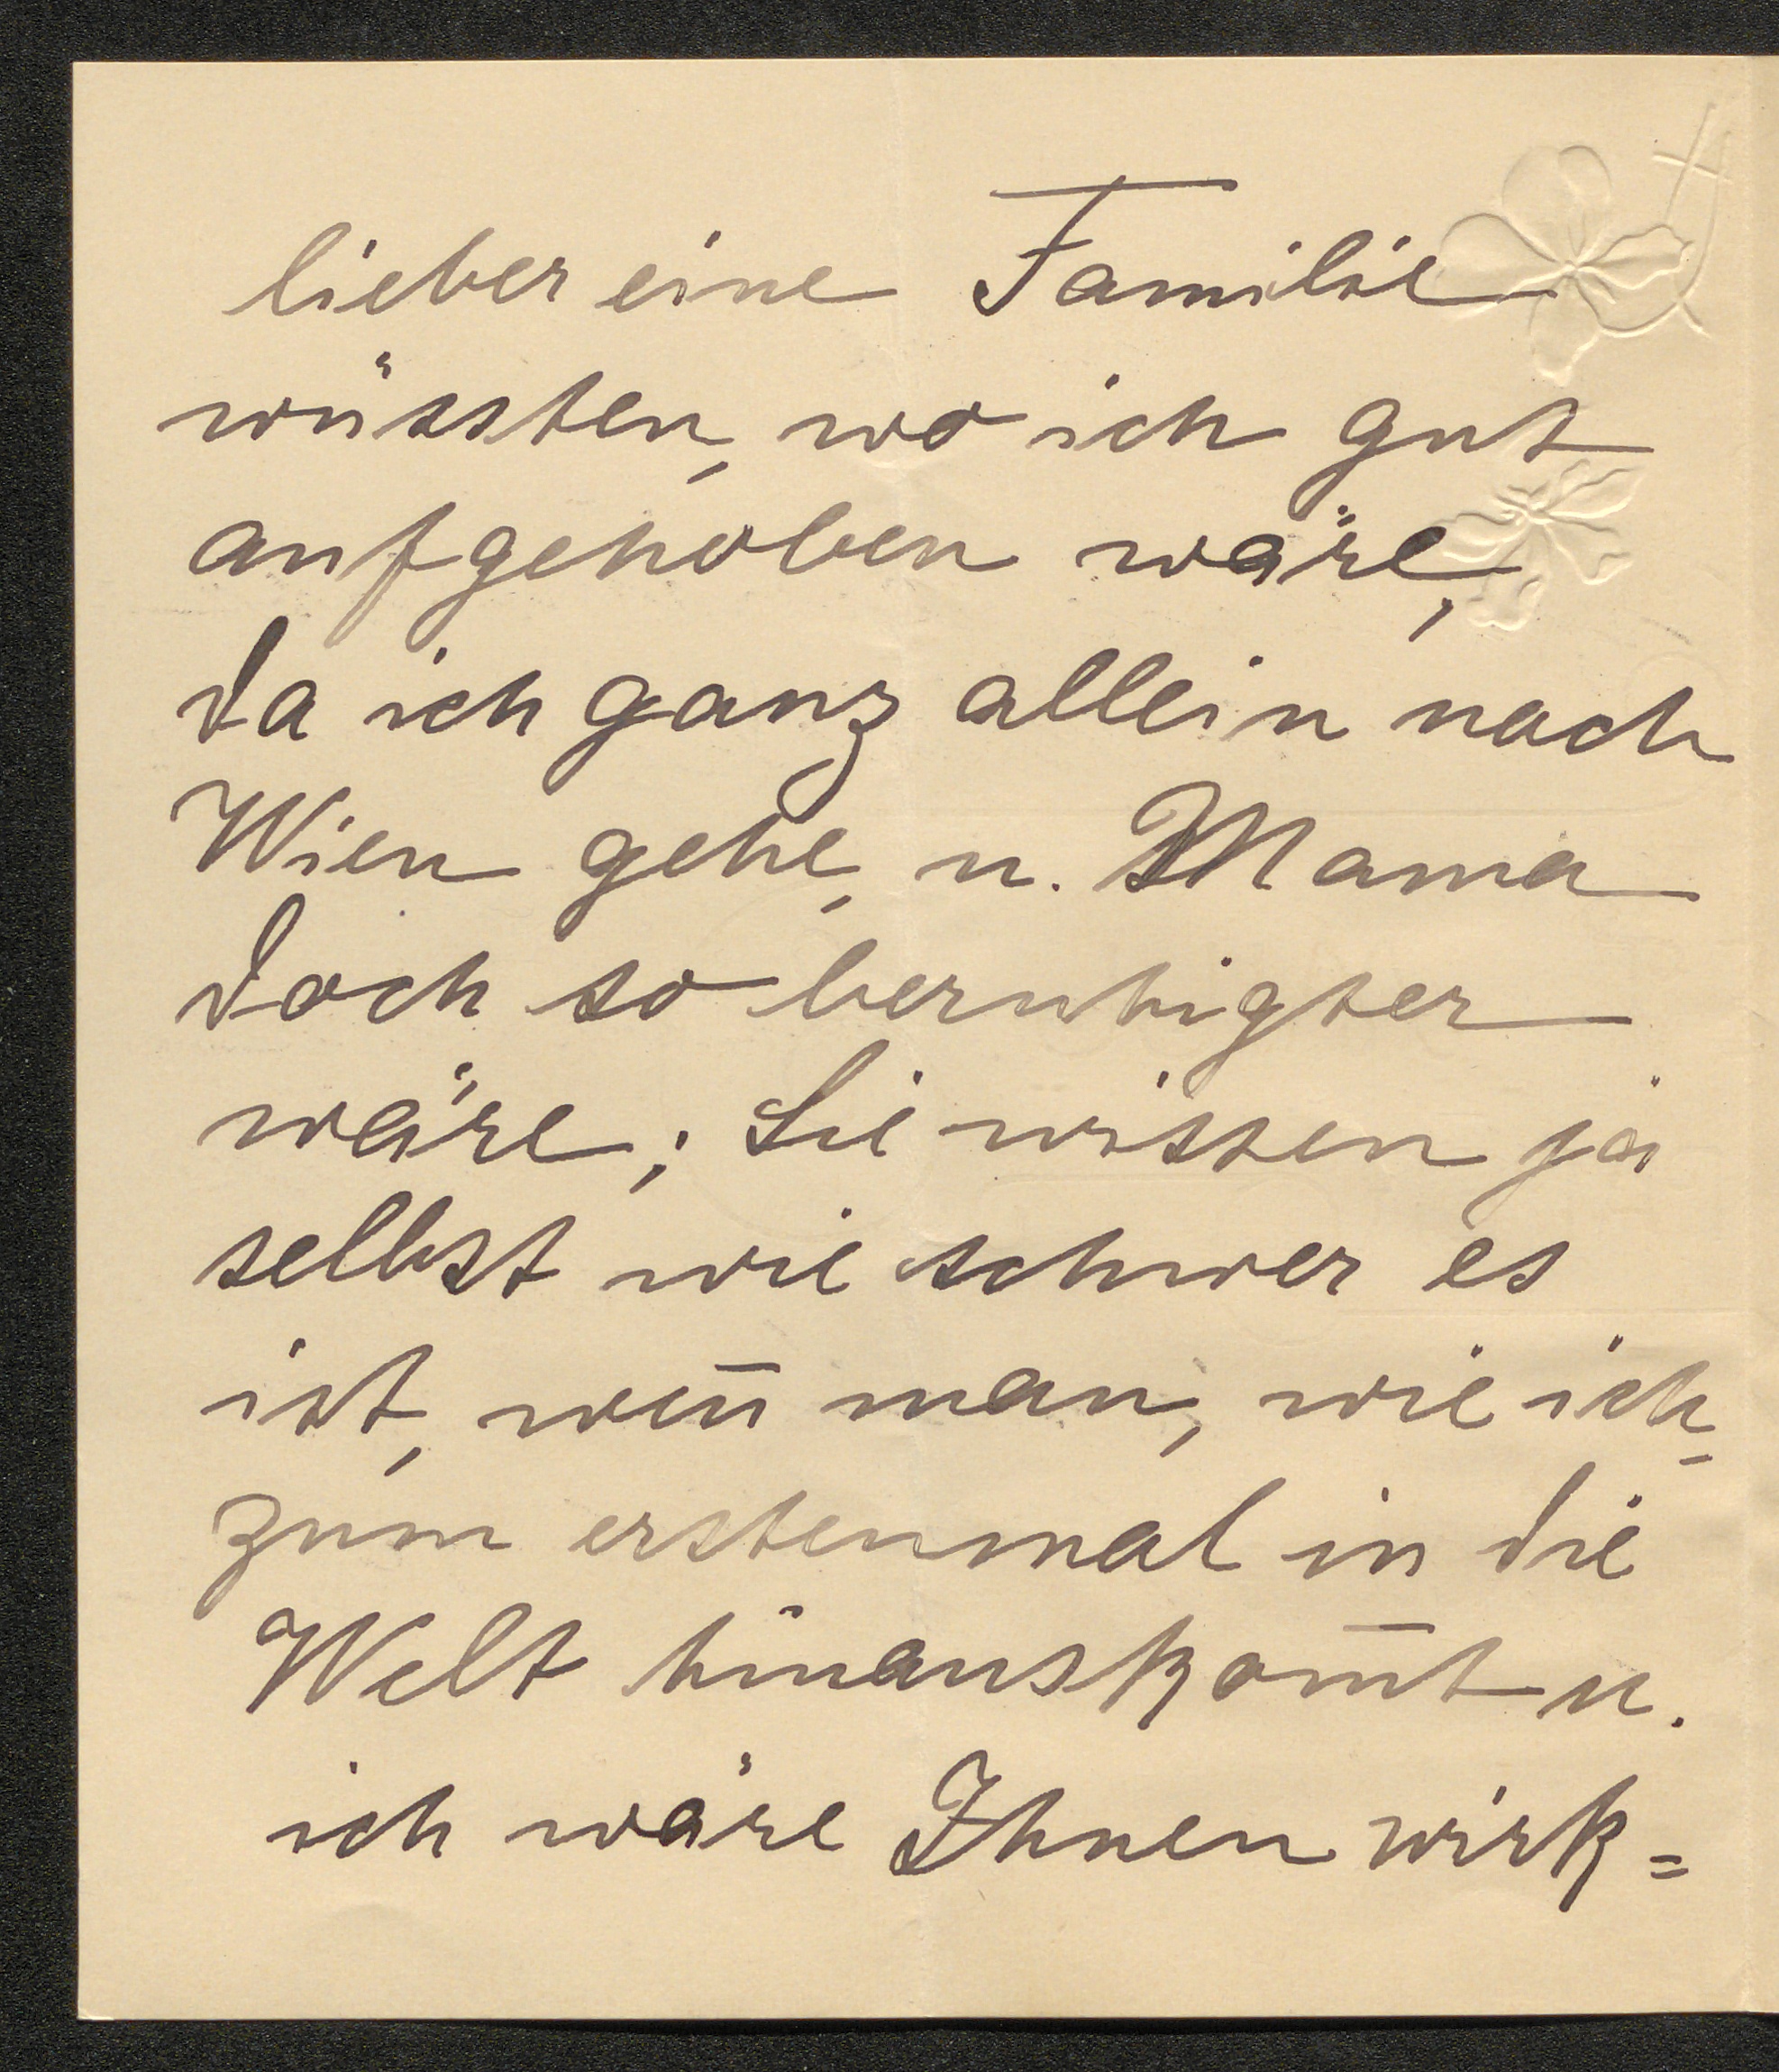 lieber eine Familie
wüssten, wo ich gut
aufgehoben wäre,
da ich ganz allein nach
Wien gehe, u. Mama
doch so beruhigter
wäre; Sie wissen ja
selbst wie schwer es
ist, weñ man, wie ich,
zum erstenmal in die
Welt hinauskom̄t u.
ich wäre Ihnen wirk=